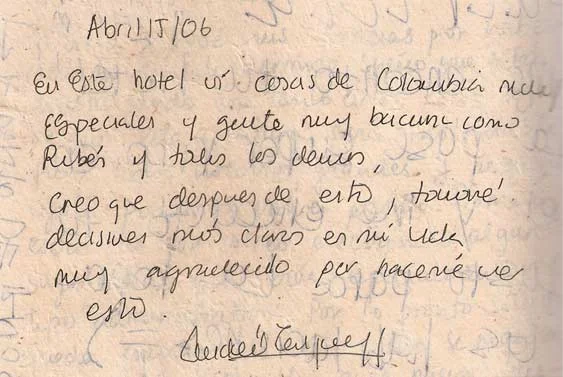 Abril 15/06
En Este hotel ví cosas de Colombia muy
Especiales y gente muy bacana como
Rubés y todos los demas,
Creo que despues de esto, tomaré
decisiones más claras en mi vida
muy agradecido por hacerme ver
esto.